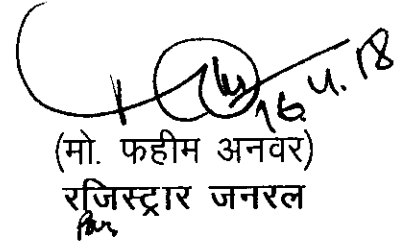 16.4.18
(मो. फहीम अनवर)
रजिस्ट्रार जनरल